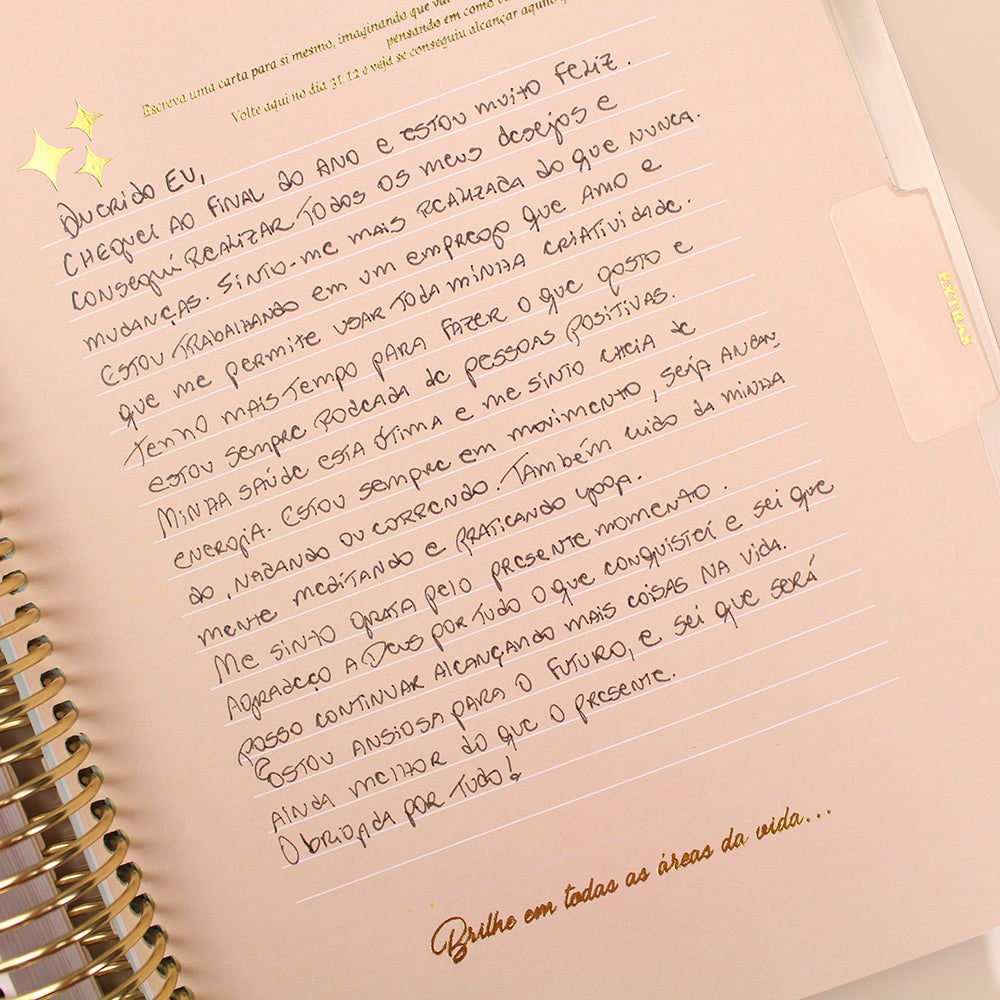 Escreva uma carta para si mesmo, imaginando que
pensando em como
Volte aqui no dia 31.12 e veja se conseguiu alcançar aquilo
Querido Eu,
Cheguei ao final do ano e estou muito feliz.
Consegui realizar todos os meus desejos e
mudanças. Sinto-me mais realizada do que nunca.
Estou trabalhando em um emprego que amo e
que me permite usar toda minha criatividade.
Tenho mais tempo para fazer o que gosto e
estou sempre rodeada de pessoas positivas.
Minha saúde está ótima e me sinto cheia de
energia. Estou sempre em movimento, seja andan
do, nadando ou correndo. Também cuido da minha
mente meditando e praticando yoga.
Me sinto grata pelo presente momento.
Agradeço a Deus por tudo o que conquistei e sei que
posso continuar alcançando mais coisas na vida.
Estou ansiosa para o futuro, e sei que será
ainda melhor do que o presente.
Obrigada por tudo!
Brilhe em todas as áreas da vida...
EXTRAS